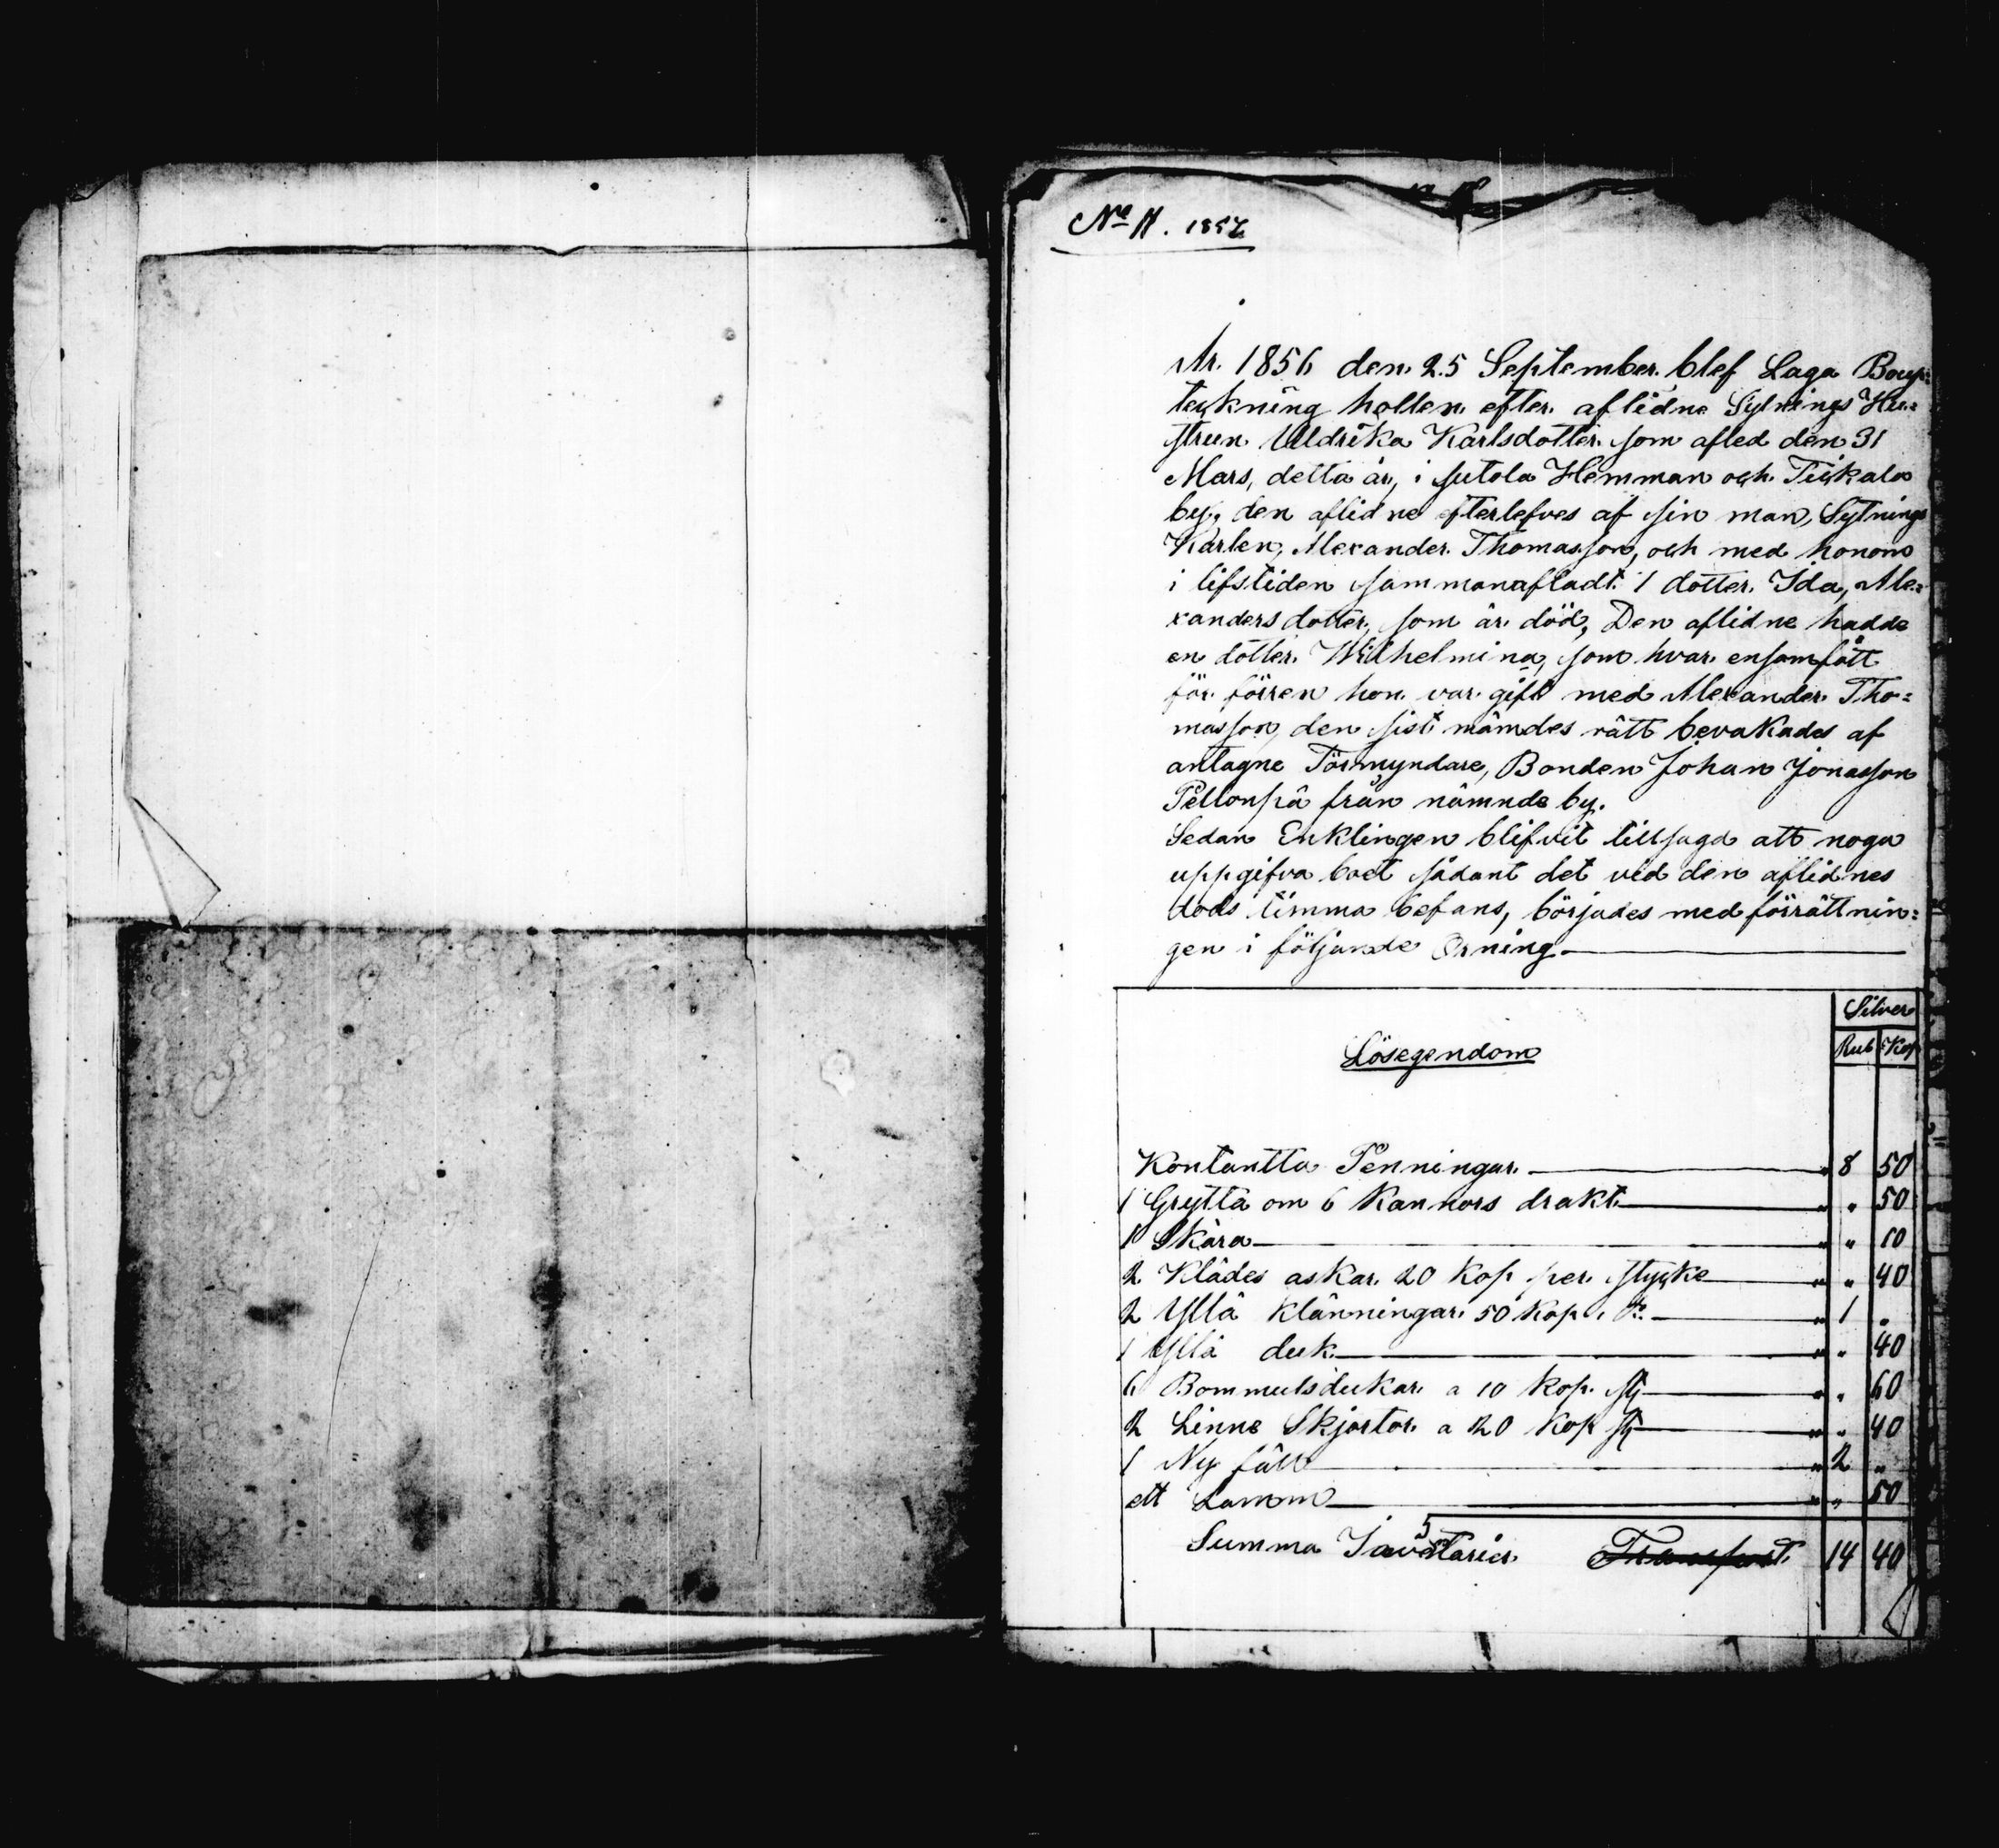 No 11. 1857
År 1856 den 25 September blef Laga Boup=
teckning hollen efter aflidne Sytnings Hu=
strun Uldrika Karlsdotter som afled den 31
Mars, detta år, i Jutola Hemman och Tiickala
by, den aflidne efterlefves af sin man, Sytnings
Karlen, Alexander Thomasson, och med honom
i lifstiden sammanafladt 1 dotter Ida, Ale=
xandersdotter, som är död, Den aflidne hadde
en dotter Wilhelmina, som hvar ensamfött
för förren hon var gift med Alexander Tho=
masson, den sist nämdes rätt bevakades af
antagne Förmyndare, Bonden Johan Jonasson
Pellonpä från nämnde by.
Sedan Enklingen blifvit tillsagd att noga
uppgifva boet sådant det ved den aflidnes
döds timma befans, börjades med förrättnin=
gen i följande Orning
Silver
Lösegendom Rub Kop
Kontantta Penningar " 8 50
1 Grytta om 6 Kannors drakt " " 50
1 Skära " " 10
2 Klädes askar 20 Kop per stycke " " 40
2 Yllä Klänningar 50 Kop " 1 "
1 Yllä duk " " 40
6 Bommulsdukar a 10 Kop. st " " 60
2 Linne Skjortor a 20 Kop st " " 40
1 Ny fäll " 2 "
ett Lamm " " 50
Summa Inventarier Transport 14 40